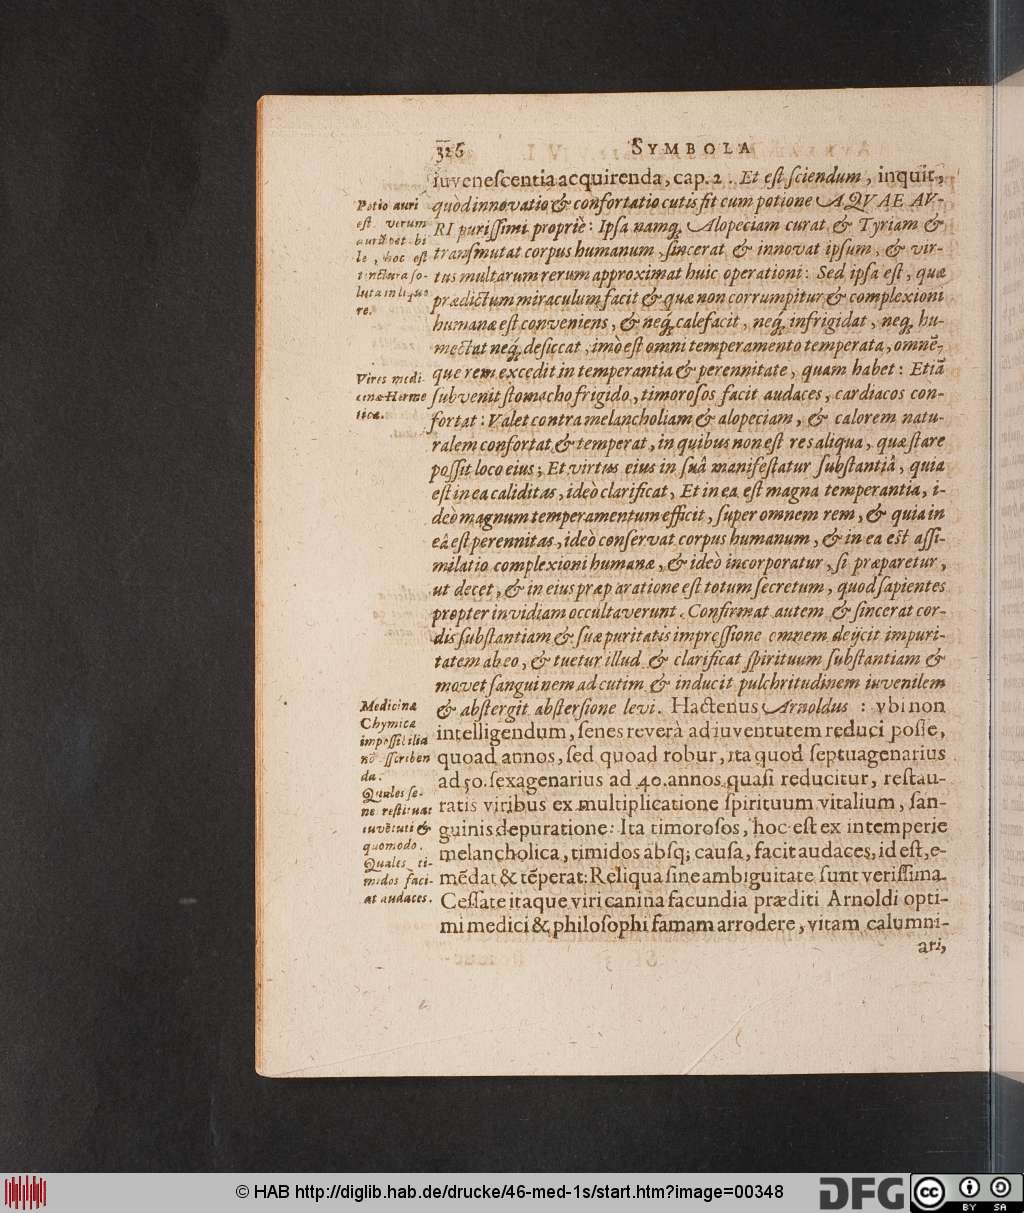 326 SYMBOLA
iuvenescentia acquirenda, cap. 2. Et est sciendum, inquit,
quod innovatio & confortatio cutis fit cum potione AQVAE AV-
RI purissimi propriè: Ipsa namq; Alopeciam curat & Tyriam &
transmutat corpus humanum, sincerat & innovat ipsum, & vir-
tus multarum rerum approximat huic operationi: Sed ipsa est, quæ
prædictum miraculum facit & quæ non corrumpitur & complexioni
humanæ est conveniens, & neq; calefacit, neq; infrigidat, neq; hu-
mectat neq; desiccat, imò est omni temperamento temperata, omnē-
que rem excedit in temperantia & perennitate, quam habet: Etiā
subvenit stomacho frigido, timorosos facit audaces, cardiacos con-
fortat: Valet contra melancholiam & alopeciam, & calorem natu-
ralem confortat & temperat, in quibus non est res aliqua, quæ stare
possit loco eius; Et virtus eius in suâ manifestatur substantiâ, quia
est in ea caliditas, ideò clarificat, Et in ea est magna temperantia, i-
deò magnum temperamentum efficit, super omnem rem, & quia in
eâ est perennitas, ideò conservat corpus humanum, & in ea est assi-
milatio complexioni humanæ, & ideò incorporatur, si præparetur,
ut decet, & in eius præparatione est totum secretum, quod sapientes
propter invidiam occultaverunt. Confirmat autem & sincerat cor-
dis substantiam & suæ puritatis impressione omnem deijcit impuri-
tatem ab eo, & tuetur illud & clarificat spirituum substantiam &
movet sanguinem ad cutim & inducit pulchritudinem iuvenilem
& abstergit abstersione levi. Hactenus Arnoldus: vbi non
intelligendum, senes reverà ad iuventutem reduci posse,
quoad annos, sed quoad robur, ita quod septuagenarius
ad 50. sexagenarius ad 40. annos quasi reducitur, restau-
ratis viribus ex multiplicatione spirituum vitalium, san-
guinis depuratione: Ita timorosos, hoc est ex intemperie
melancholica, timidos absq; causa, facit audaces, id est, e-
mēdat & tēperat: Reliqua sine ambiguitate sunt verissima.
Cessate itaque viri canina facundia præditi Arnoldi opti-
mi medici & philosophi famam arrodere, vitam calumni-
ari,
Potio auri
est verum
aurū potabi
le, hoc est
tinctura so-
luta in liquo
re.
Vires medi-
cinæ Herme
ticæ.
Medicinæ
Chymicæ
impossibilia
nō asscriben
da.
Quales se-
ne restituat
iuvētuti &
quomodo.
Quales ti-
midos faci-
at audaces.
© HAB http://diglib.hab.de/drucke/46-med-1s/start.htm?image=00348
DFG
cc BY SA